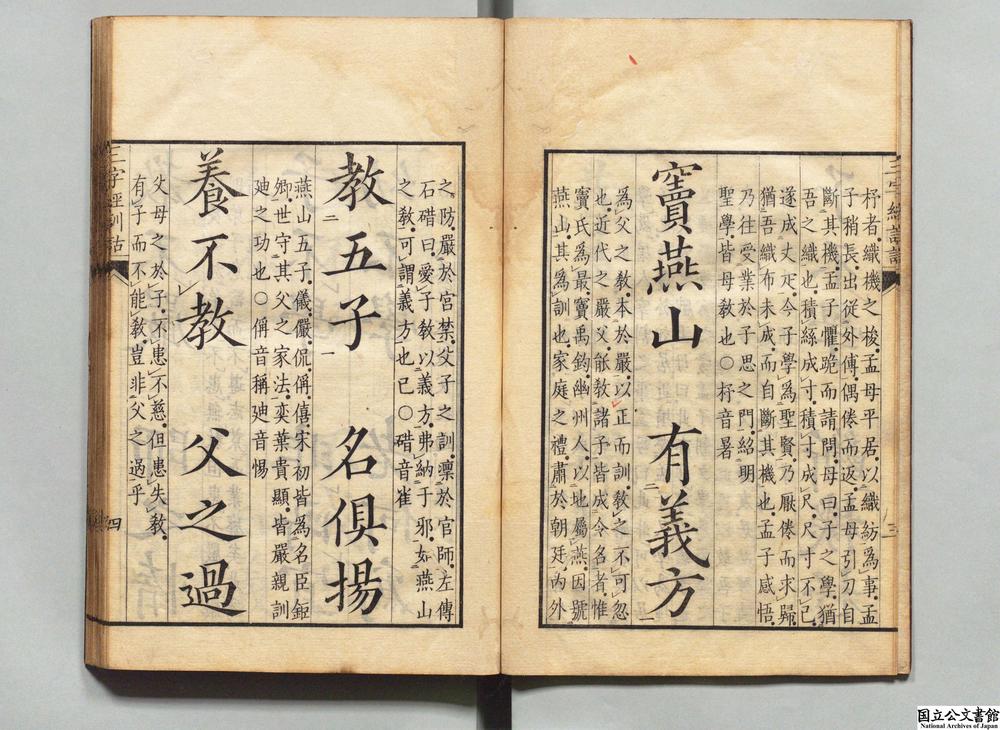 杼者織機之梭孟母平居以織紡為事孟
子稍長出從外傅偶倦而返孟母引刀自
斷其機孟子懼跪而請問母曰子之學猶
吾之織也積絲成寸積寸成尺尺寸不已
遂成丈疋今子學為聖賢乃厭倦而求歸
猶吾織布未成而自斷其機也孟子感悟
乃往受業於子思之門紹明
聖學皆母教也○杼音暑
竇燕山 有義方
為父之教本於嚴以正而訓教之不可忽
也近代之嚴父能教諸子皆成令名者惟
竇氏為最竇禹鈞幽州人以地屬燕因號
燕山其為訓也家庭之禮肅於朝廷內外
三
三字經訓詁
之防嚴於宮禁父子之訓凛於官師左傳
石碏曰愛子教以義方弗納于邪如燕山
之教可謂義方也已○碏音雀
教五子 名俱揚
燕山五子儀儼侃偁僖宋初皆為名臣鉅
卿世守其父之家法奕葉貴顯皆嚴親訓
廸之功也○偁音稱廸音惕
養不教 父之過
父母之於子不患不慈但患失教
有子而不能教豈非父之過乎
三字經訓詁
四
国立公文書館
National Archives of Japan